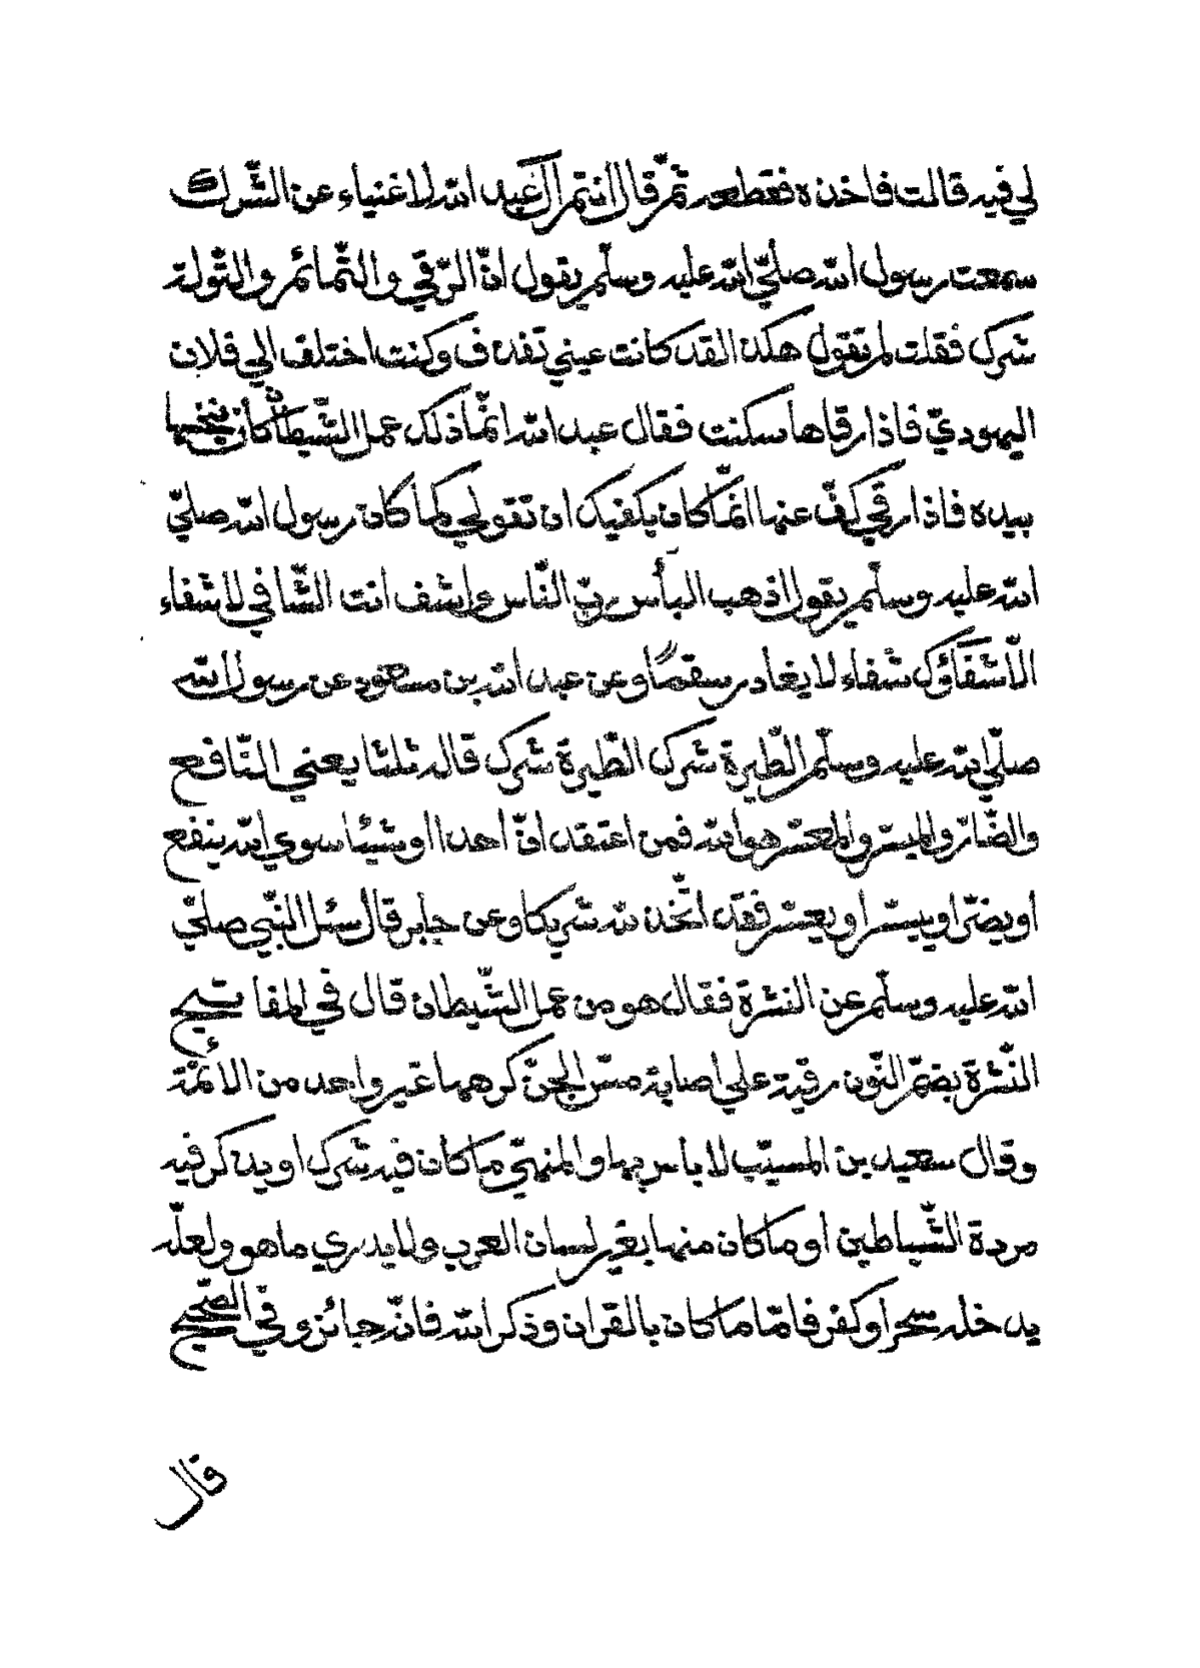 لي فيه قالت فاخذه فقطعه ثمّ قال انتم آل عبد الله لاغنياء عن الشّرك
سمعت رسول الله صلّي الله عليه وسلّم يقول انّ الرّقي والتّمائم والتّولة
شرك فقلت لم تقول هكذا لقد كانت عيني تقذف وكنت اختلف الي فلان
اليهوديّ فاذا رقاها سكنت فقال عبد الله انّما ذلك عمل الشّيطان كان ينخسها
بيده فاذا رقي كفّ عنها انّما كان يكفيك ان تقولي كما كان رسول الله صلّي
الله عليه وسلّم يقول اذهب البأس ربّ النّاس واشف انت الشّافي لا شفاء
الّا شفاؤك شفاء لا يغادر سقمًا وعن عبد الله بن مسعود عن رسول الله
صلّي الله عليه وسلّم الطّيرة شرك الطّيرة شرك قاله ثلثا يعني النّافع
والضّارّ والميسّر والمعسّر هو الله فمن اعتقد انّ احدا او شيئا سوي الله ينفع
او يضرّ او ييسّر او يعسّر فقد اتّخذ لله شريكا وعن جابر قال سئل النّبي صلّي
الله عليه وسلّم عن النشرة فقال هو من عمل الشّيطان قال في المفاتيح
النّشرة بضمّ النّون رقية علي اصابة مسّ الجنّ كرهها غير واحد من الأئمّة
وقال سعيد بن المسيّب لا باس بها والمنهيّ ما كان فيه شرك او يذكر فيه
مردة الشّياطين او ما كان منها بغير لسان العرب ولا يدري ما هو ولعلّه
يدخله سحر او كفر فامّا ما كان بالقران وذكر الله فانّه جائز وفي الصّحيح
قال